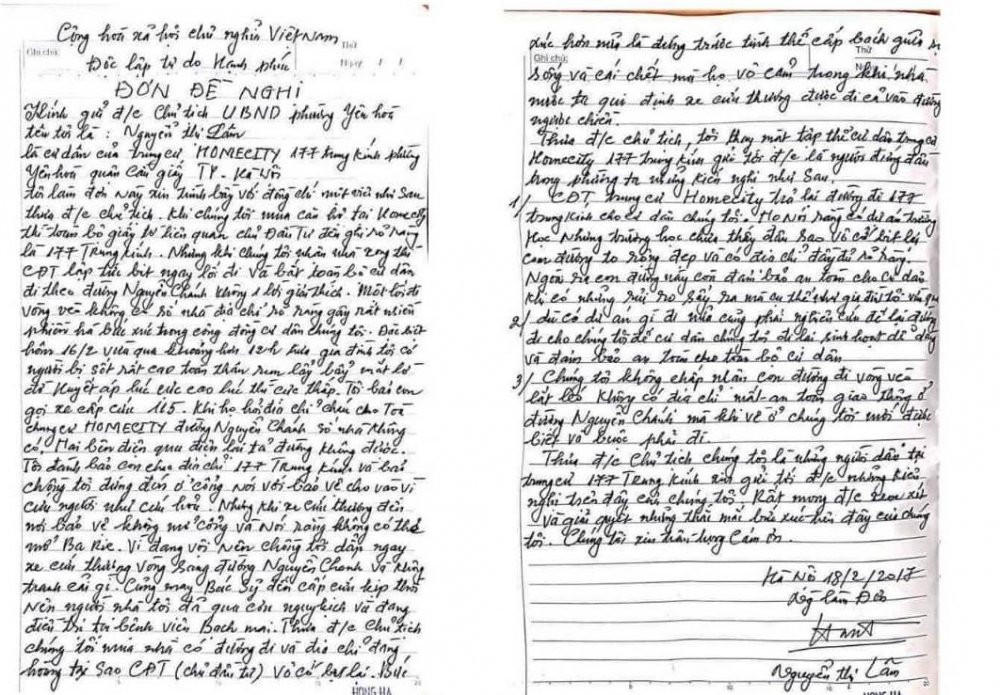 Cộng hoà xã hội chủ nghĩa Việt Nam
Ghi chú: Thứ
Độc lập tự do Hạnh phúc Ngày
ĐƠN ĐỀ NGHỊ
Kính gửi đ/c Chủ tịch UBND phường Yên hoà
tên tôi là: Nguyễn thị Lân
là cư dân của trung cư HOMECITY 177 trung kính phường
Yên hoà quân Cầu giấy TP - Hà Nội
tôi làm đơn này xin trình bày với đồng chí một việc như sau
thưa đ/c chủ tịch. Khi chúng tôi mua căn hộ tại Homecity
thì toàn bộ giấy tờ liên quan chủ Đầu Tư đều ghi rõ ràng
là 177 Trung Kính. Nhưng khi chúng tôi nhận nhà xong thì
CĐT lập tức bịt ngay lối đi và bắt toàn bộ cư dân
đi theo đường Nguyễn Chánh không 1 lời giải thích. Một lối đi
vòng vèo không có số nhà địa chỉ rõ ràng gây rất nhiều
phiền hà bức xúc trong cộng đồng cư dân chúng tôi. Đặc biệt
hôm 16/2 vừa qua khoảng hơn 12h trưa gia đình tôi có
người bị sốt rất cao toàn thân run lẩy bẩy mắt lờ
đờ Huyết áp lúc cực cao lúc thì cực thấp. Tôi bảo con
gọi xe cấp cứu 115. Khi họ hỏi địa chỉ cháu cho Toà
chung cư HOMECITY đường Nguyễn Chánh số nhà không
có. Hai bên điện qua điện lại tả đường không được.
Tôi đành bảo con cho địa chỉ 177 Trung Kính và bảo
chồng tôi đứng đợi ở cổng Nói với bảo vệ cho vào vì
cứu người như cứu hoả. Nhưng khi xe cứu thương đến
nơi bảo vệ không mở cổng và Nói rằng không có thể
mở Ba Rie. Vì đang vội nên chồng tôi dẫn ngay
xe cứu thương vòng sang đường Nguyễn Chanh và không
tranh cãi gì. Cũng may Bác Sỹ đến cấp cứu kịp thời
nên người nhà tôi đã qua cơn nguy kịch và đang
điều trị tại bênh viên Bach mai. Thưa đ/c chủ tịch
chúng tôi mua nhà có đường đi và địa chỉ đàng
hoàng tại sao CĐT (chủ đầu tư) Vô cớ bịt lại. Bức
HONG HA
xúc hơn nữa là đứng trước tình thế cấp bách giữa sự
Ghi chú: Thứ
sống và cái chết mà họ vô cảm trong khi nhà
nước ta qui định xe cứu thương được đi cả vào đường
ngược chiều.
Thưa đ/c chủ tịch, tôi thay mặt tập thể cư dân trung cư
Homecity 177 trung kính gửi tới đ/c là người đứng đầu
trong phường ta những kiến nghị như sau.
1/ CĐT trung cư Homecity trả lại đường đi 177
trung Kính cho cư dân chúng tôi. Họ Nói rằng có dự án trường
Học Nhưng trường học chưa thấy đâu sao vô cớ bịt lại
con đường to rộng đẹp và có địa chỉ đầy đủ rõ ràng.
Ngoài ra con đường này còn đảm bảo an toàn cho cư dân
khi có những rủi ro xẩy ra mà cụ thể như gia đình tôi vừa qua
2/ dù có dự án gì đi nữa cũng phải nghiên cứu để lại đường
đi cho chúng tôi để cư dân chúng tôi đi lại sinh hoạt dễ dàng
và đảm bảo an toàn cho toàn bộ cư dân
3/ Chúng tôi không chấp nhận con đường đi vòng vèo
lắt léo không có địa chỉ mất an toàn giao thông ở
đường Nguyễn Chánh mà khi về ở chúng tôi mới được
biết và buộc phải đi.
Thưa đ/c Chủ tịch chúng tôi là những người dân tại
trung cư 177 Trung Kính xin gửi tới đ/c những kiến
nghị trên đây của chúng tôi. Rất mong đ/c xem xét
và giải quyết những thắc mắc bức xúc trên đây của chúng
tôi. Chúng tôi xin trân trọng Cám ơn.
Hà Nôi 18/2/2017
Ng làm Đơn
Nguyễn thị Lân
HONG HA